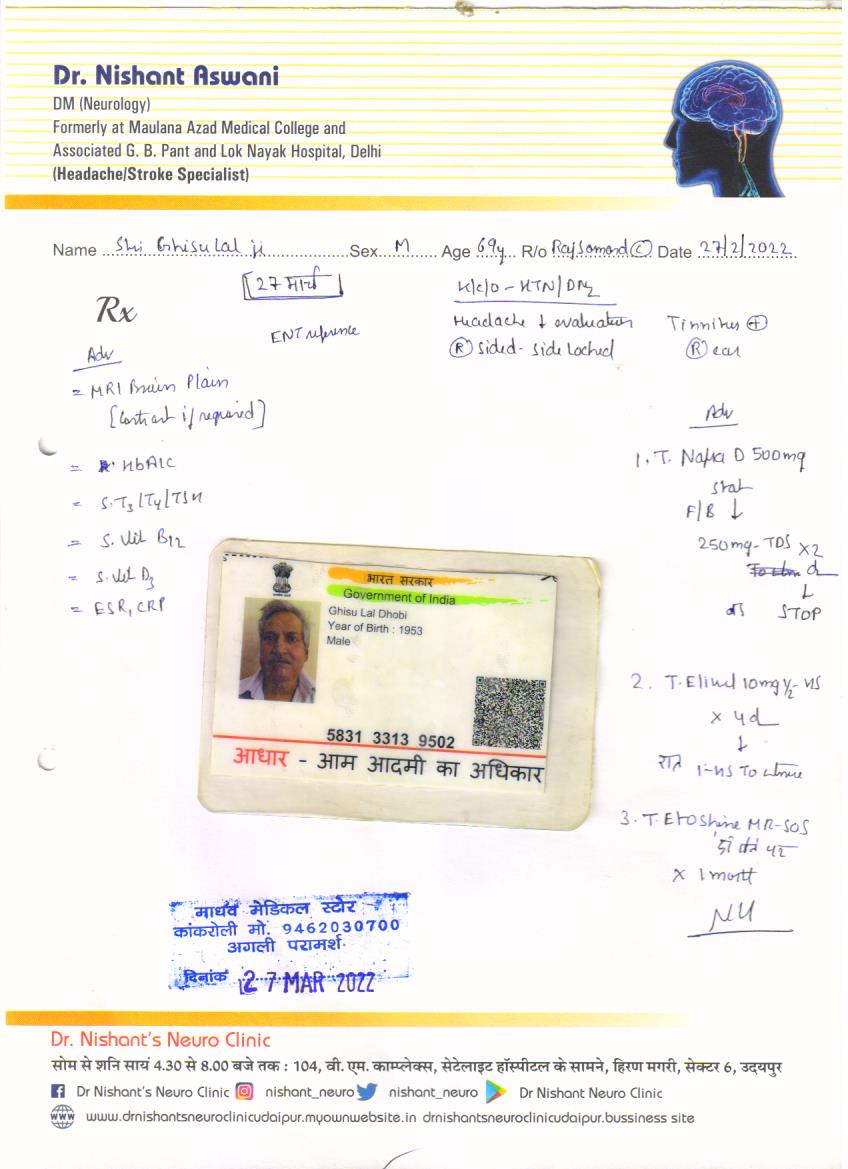 Dr. Nishant Aswani
DM (Neurology)
Formerly at Maulana Azad Medical College and
Associated G. B. Pant and Lok Nayak Hospital, Delhi
(Headache/Stroke Specialist)
Name Shri Ghisulal ji Sex M Age 69y R/o Rajsamand (C) Date 27/2/2022
Rx
[27 मार्च]
ENT reference
K/C/O - HTN/DM2
Headache ↓ evaluation
(R) sided - side locked
Tinnitus (+)
(R) ear
Adv
= MRI Brain Plain
[Contrast if required]
= HbA1C
= S. T3/T4/TSH
= S. Vit B12
= S. Vit D3
= ESR, CRP
Adv
1. T. Napra D 500mg
stat
F/B ↓
250mg - TDS x2
d
↓
STOP
2. T. Elivel 10mg 1/2 - HS
x 4d
↓
रात 1-HS To continue
3. T. Etoshine MR-SOS
पर
x 1 month
भारत सरकार
Government of India
Ghisu Lal Dhobi
Year of Birth : 1953
Male
5831 3313 9502
आधार - आम आदमी का अधिकार
माधव मेडिकल स्टोर
कांकरोली मो. 9462030700
अगली परामर्श
दिनांक 27 MAR 2022
Dr. Nishant's Neuro Clinic
सोम से शनि सायं 4.30 से 8.00 बजे तक : 104, वी. एम. काम्प्लेक्स, सेटेलाइट हॉस्पीटल के सामने, हिरण मगरी, सेक्टर 6, उदयपुर
Dr Nishant's Neuro Clinic nishant_neuro nishant_neuro Dr Nishant Neuro Clinic
www.drnishantsneuroclinicudaipur.myownwebsite.in drnishantsneuroclinicudaipur.bussiness site